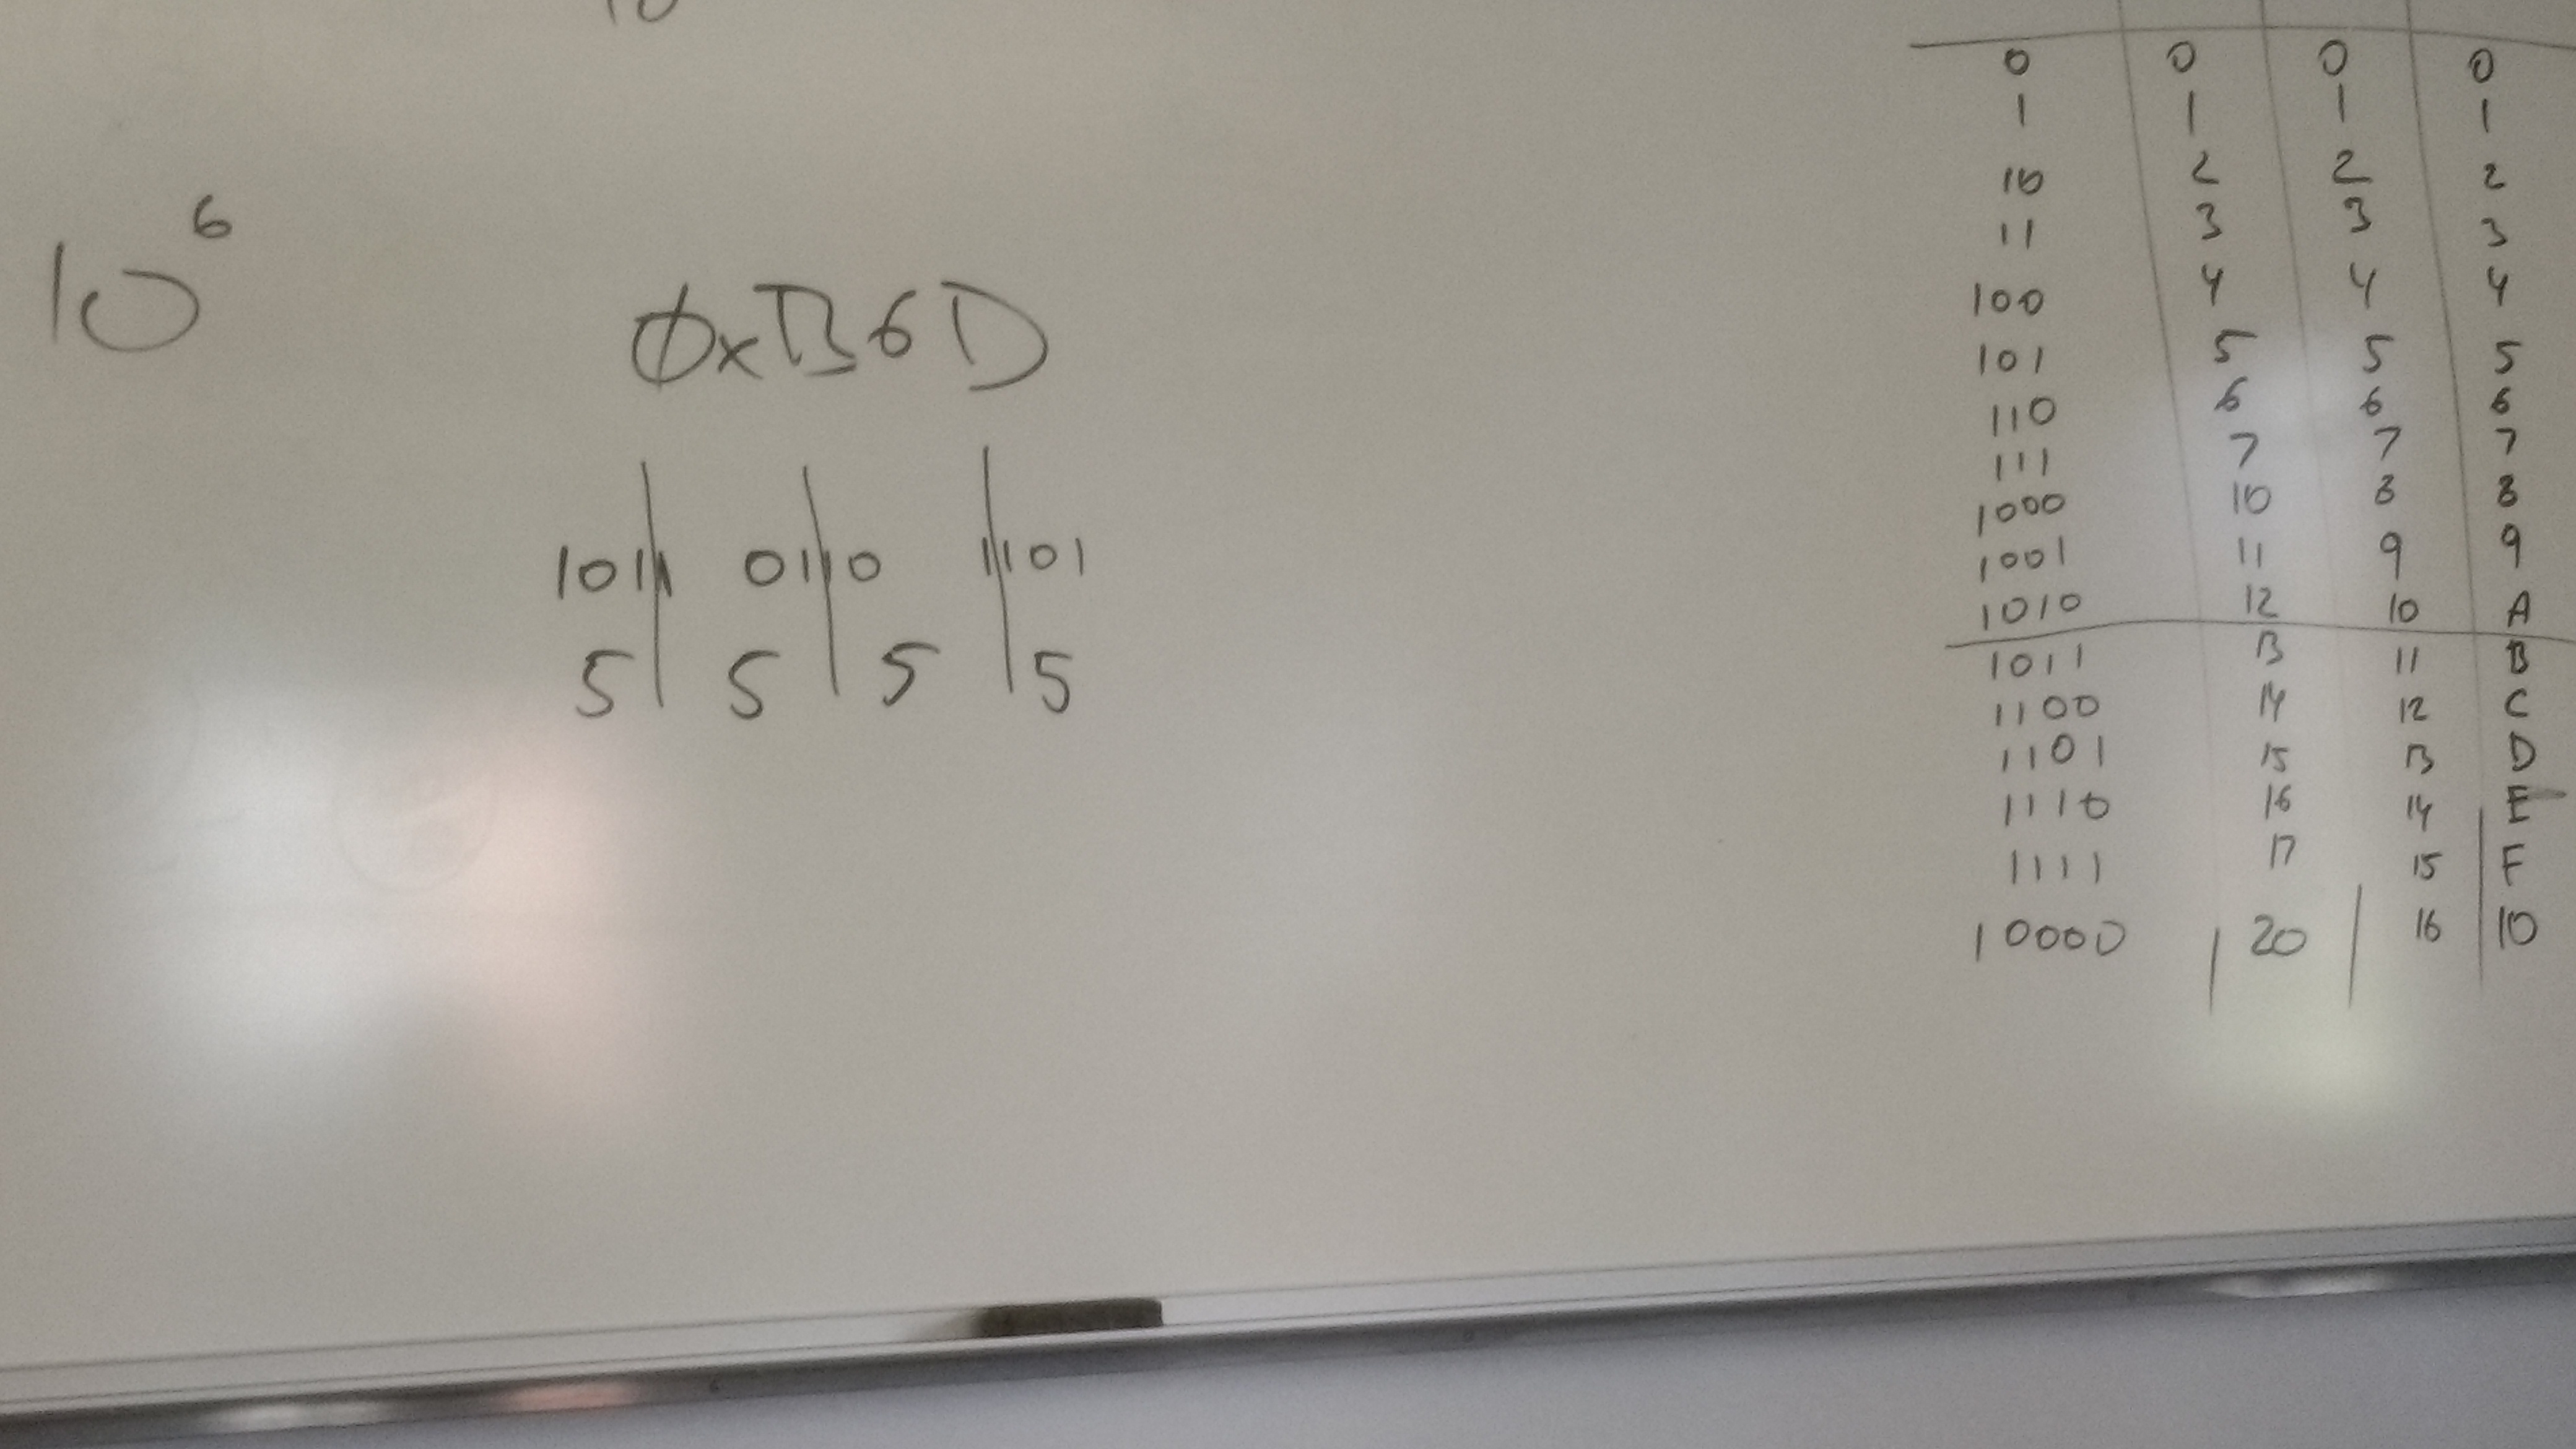 10
10^6
0xB6D
101|1 01|10 1|101
5 | 5 | 5 | 5
0 | 0 | 0 | 0
1 | 1 | 1 | 1
10 | 2 | 2 | 2
11 | 3 | 3 | 3
100 | 4 | 4 | 4
101 | 5 | 5 | 5
110 | 6 | 6 | 6
111 | 7 | 7 | 7
1000 | 10 | 8 | 8
1001 | 11 | 9 | 9
1010 | 12 | 10 | A
1011 | 13 | 11 | B
1100 | 14 | 12 | C
1101 | 15 | 13 | D
1110 | 16 | 14 | E
1111 | 17 | 15 | F
10000 | 20 | 16 | 10